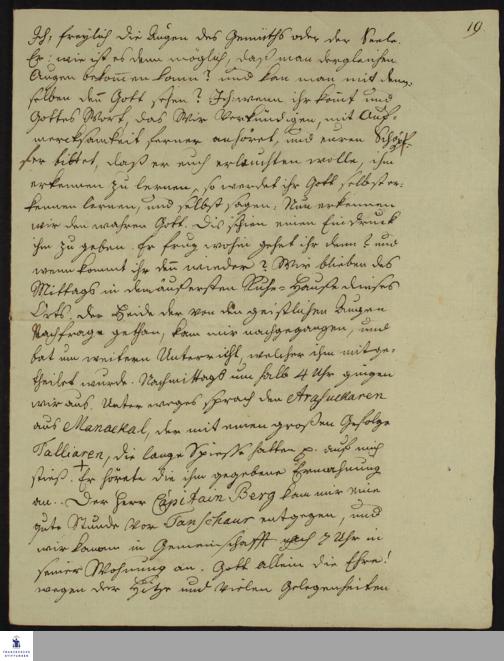 19.
Ich, freylich die Augen des Gemüths oder der Seele.
Er: wie ist es denn möglich, daß man dergleichen
Augen bekommen kann? und kan man mit dem-
selben den Gott sehen? Ich: wenn ihr kommt und
Gottes Wort, das Wir verkündigen, mit Auf-
mercksamkeit ferner anhöret, und euren Schöpf-
fer bittet, daß er euch erleuchten wolle, ihn
erkennen zu lernen, so werdet ihr Gott selbst er-
kennen lernen, und selbst sagen: Nun erkennen
wir den wahren Gott. Dis schien einen Eindruck
ihm zu geben. Er frug wohin gehet ihr denn? und
wenn kommt ihr denn wieder? Wir blieben des
Mittags in dem äußersten Ruhe-Hause dieses
Orts, der Heide der von den geistlichen Augen
Nachfrage gethan, kam mir nachgegangen, und
bat um weitern Unterricht, welcher ihm mitge-
theilet wurde. Nachmittags um halb 4 Uhr gingen
wir aus. Unterweges sprach den Arasuckaren
aus Manackal, der mit einem großen Gefolge
Talliaren, die lange Spiesse hatten p. auf mich
stieß. Er hörete die ihm gegebene Ermahnung
an. Der Herr Capitain Berg kam mir eine
gute Stunde vor Tanschaur entgegen, und
wir kamen in Gemeinschafft nach 7 Uhr in
seiner Wohnung an. Gott allein die Ehre!
wegen der Hitze und vielen Gelegenheiten
FRANCKESCHE
STIFTUNGEN